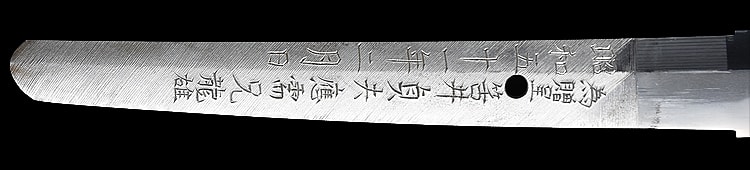 為贈呈笘井貞夫應需兄龍雄
昭和五十一年二月日